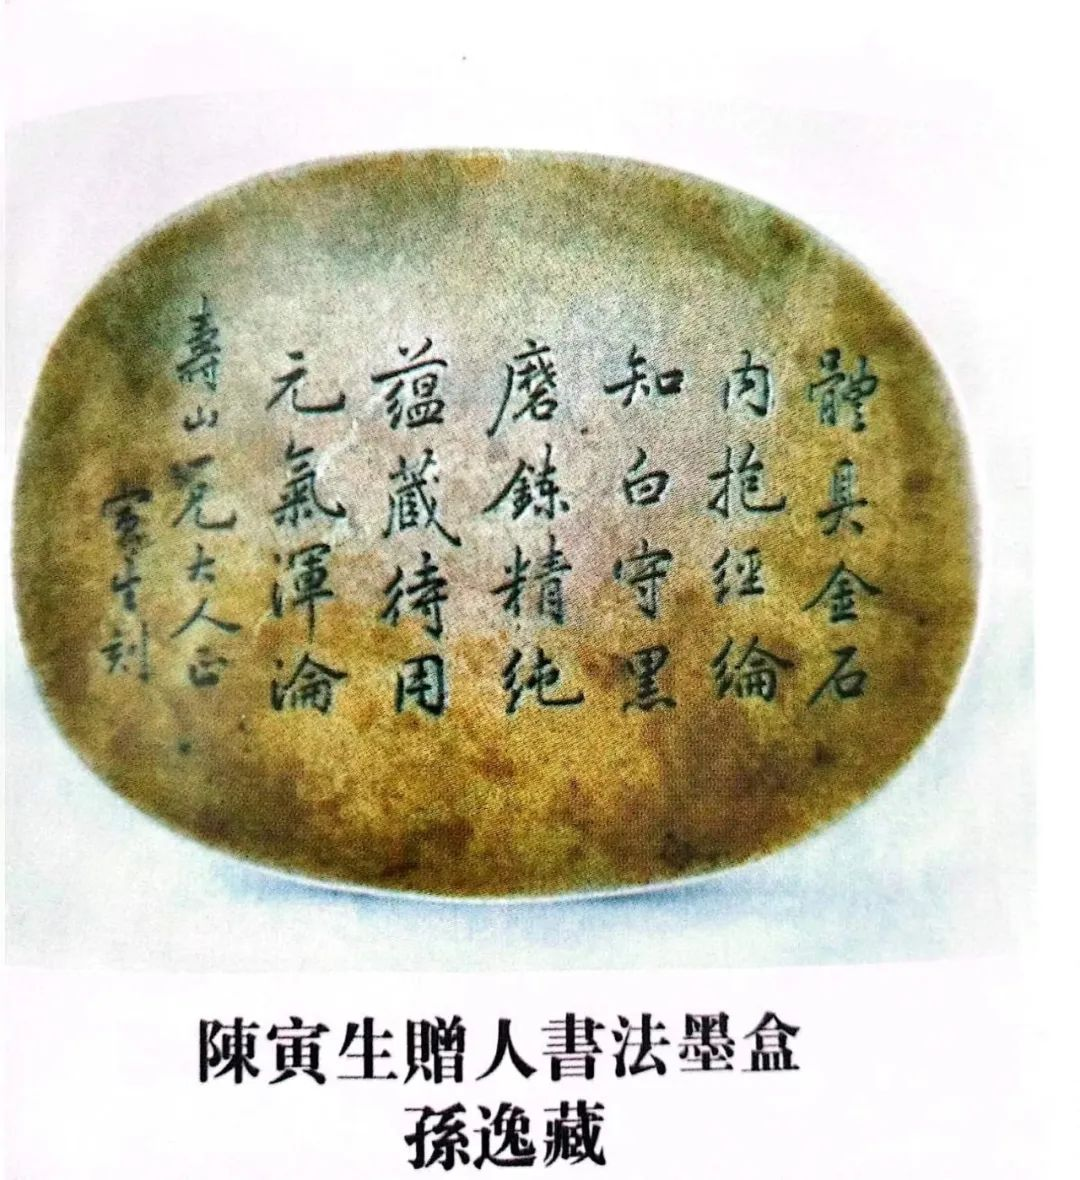 體具金石
内抱經綸
知白守黑
磨鍊精純
蕴藏待用
元氣渾淪
壽山兄大人正
寅生刻
陳寅生贈人書法墨盒
孫逸藏